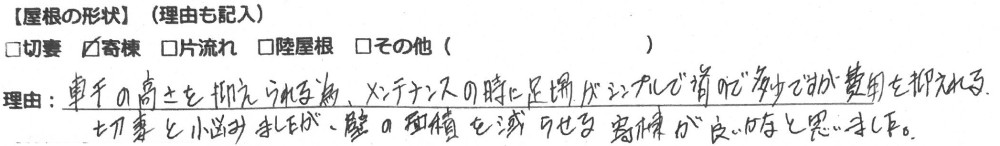 【屋根の形状】（理由も記入）
□切妻 ☑寄棟 □片流れ □陸屋根 □その他（　　　　　　　）
理由：軒の高さを抑えられる為、メンテナンスの時に足場がシンプルで済むので多少ですが費用を抑えれる。
切妻と小悩みましたが、壁の面積を減らせる寄棟が良いかなと思いました。